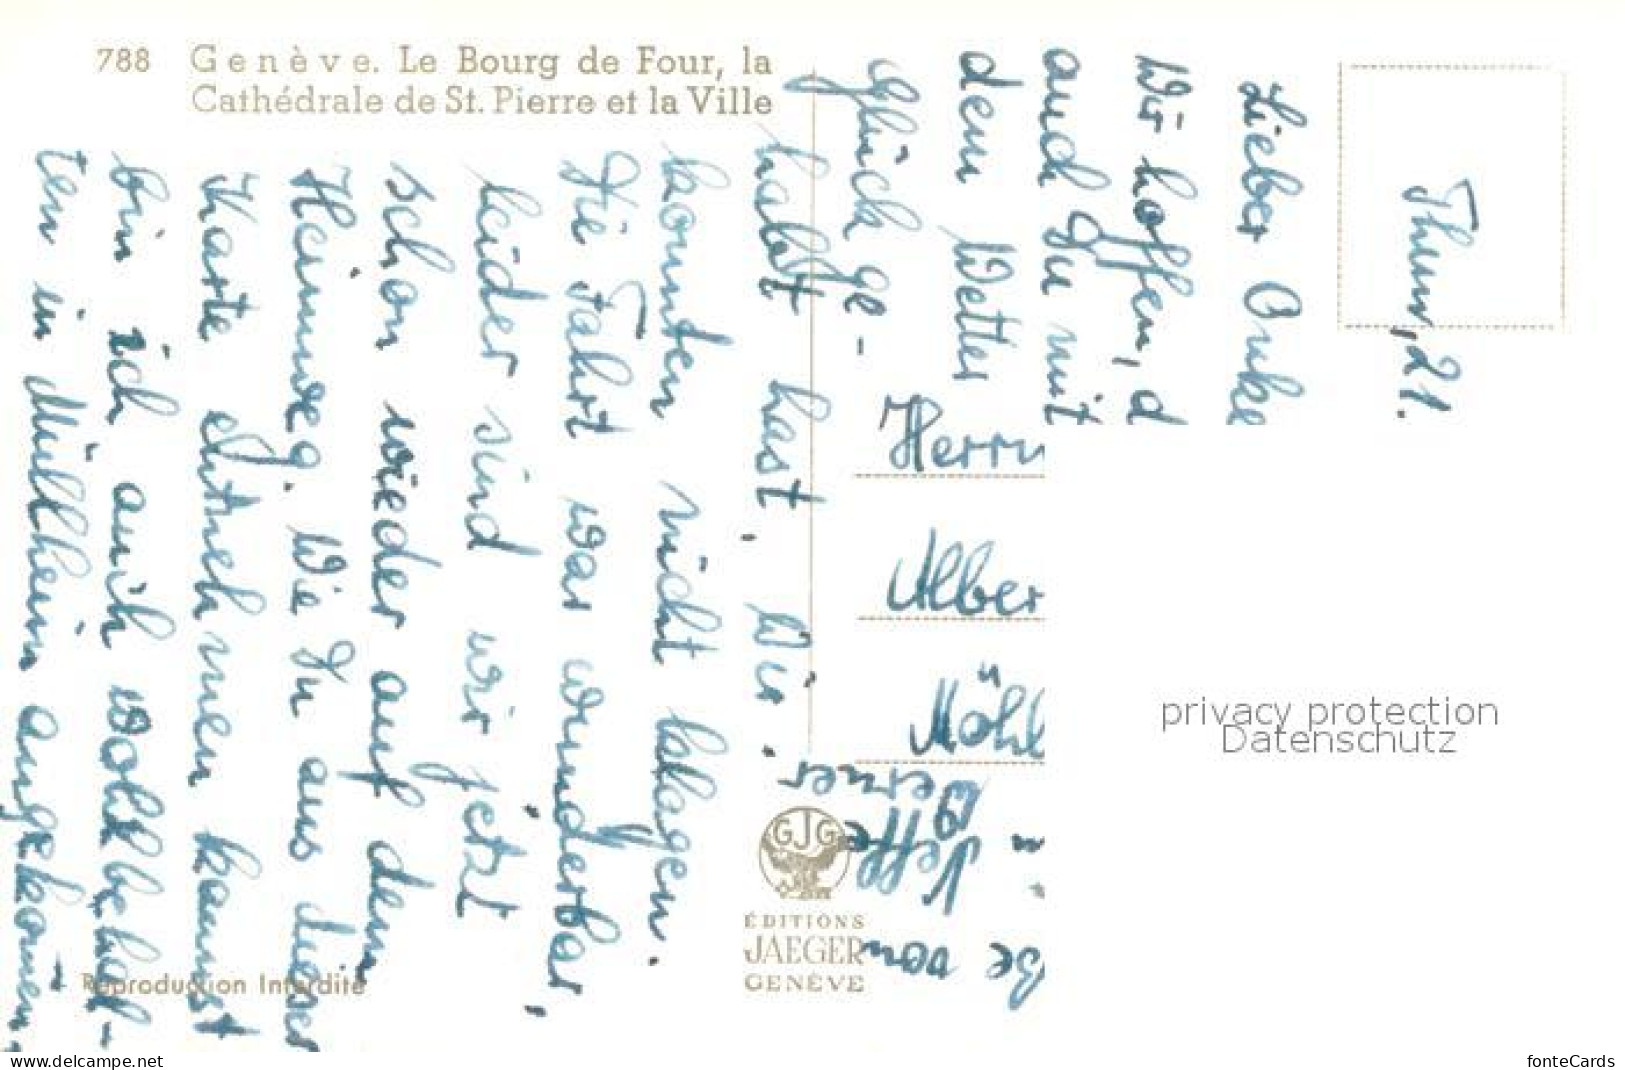 788 Genève. Le Bourg de Four, la
Cathédrale de St. Pierre et la Ville
Thun, 21.
Lieber Onke
Wir hoffen, d
auch Du mit
dem Wetter
Glück ge-
habt hast. Wir
konnten nicht klagen.
Die Fahrt war wunderbar,
leider sind wir jetzt
schon wieder auf dem
Heimweg. Wie Du aus dieser
Karte entnehmen kannst
bin ich auch wohlbehal-
ten in Müllheim angekommen,
Herrn
Alber
Möhl
ße vom
Neffe
Werner
GJG
ÉDITIONS
JAEGER
GENÈVE
Reproduction Interdite
privacy protection
Datenschutz
www.delcampe.net
fonteCards